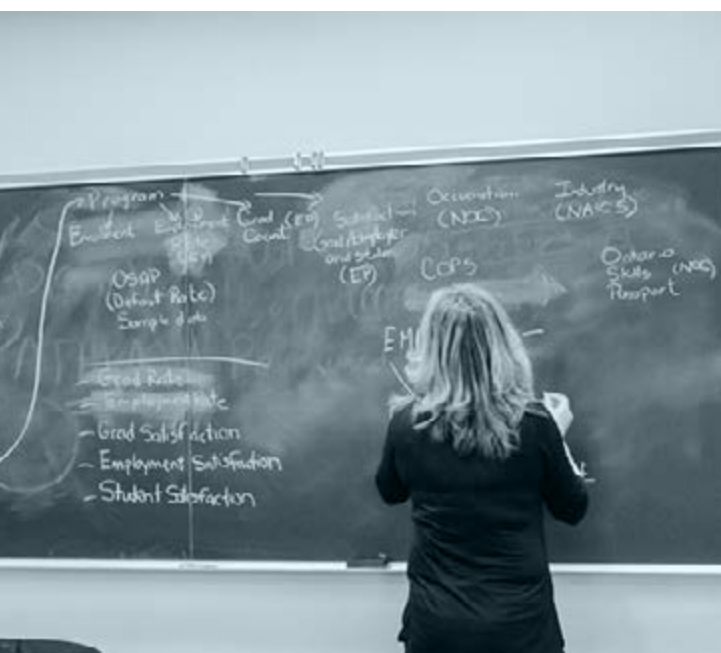 Program
Enrolment
Employment
Grad (EP)
Count
Subject
and
(EP)
Occupation
(NOC)
Industry
(NAICS)
OSAP
(Default Rate)
Sample data
COPS
Ontario
Skills (NOC)
Passport
EM
- Grad Rate
- Employment Rate
- Grad Satisfaction
- Employment Satisfaction
- Student Satisfaction